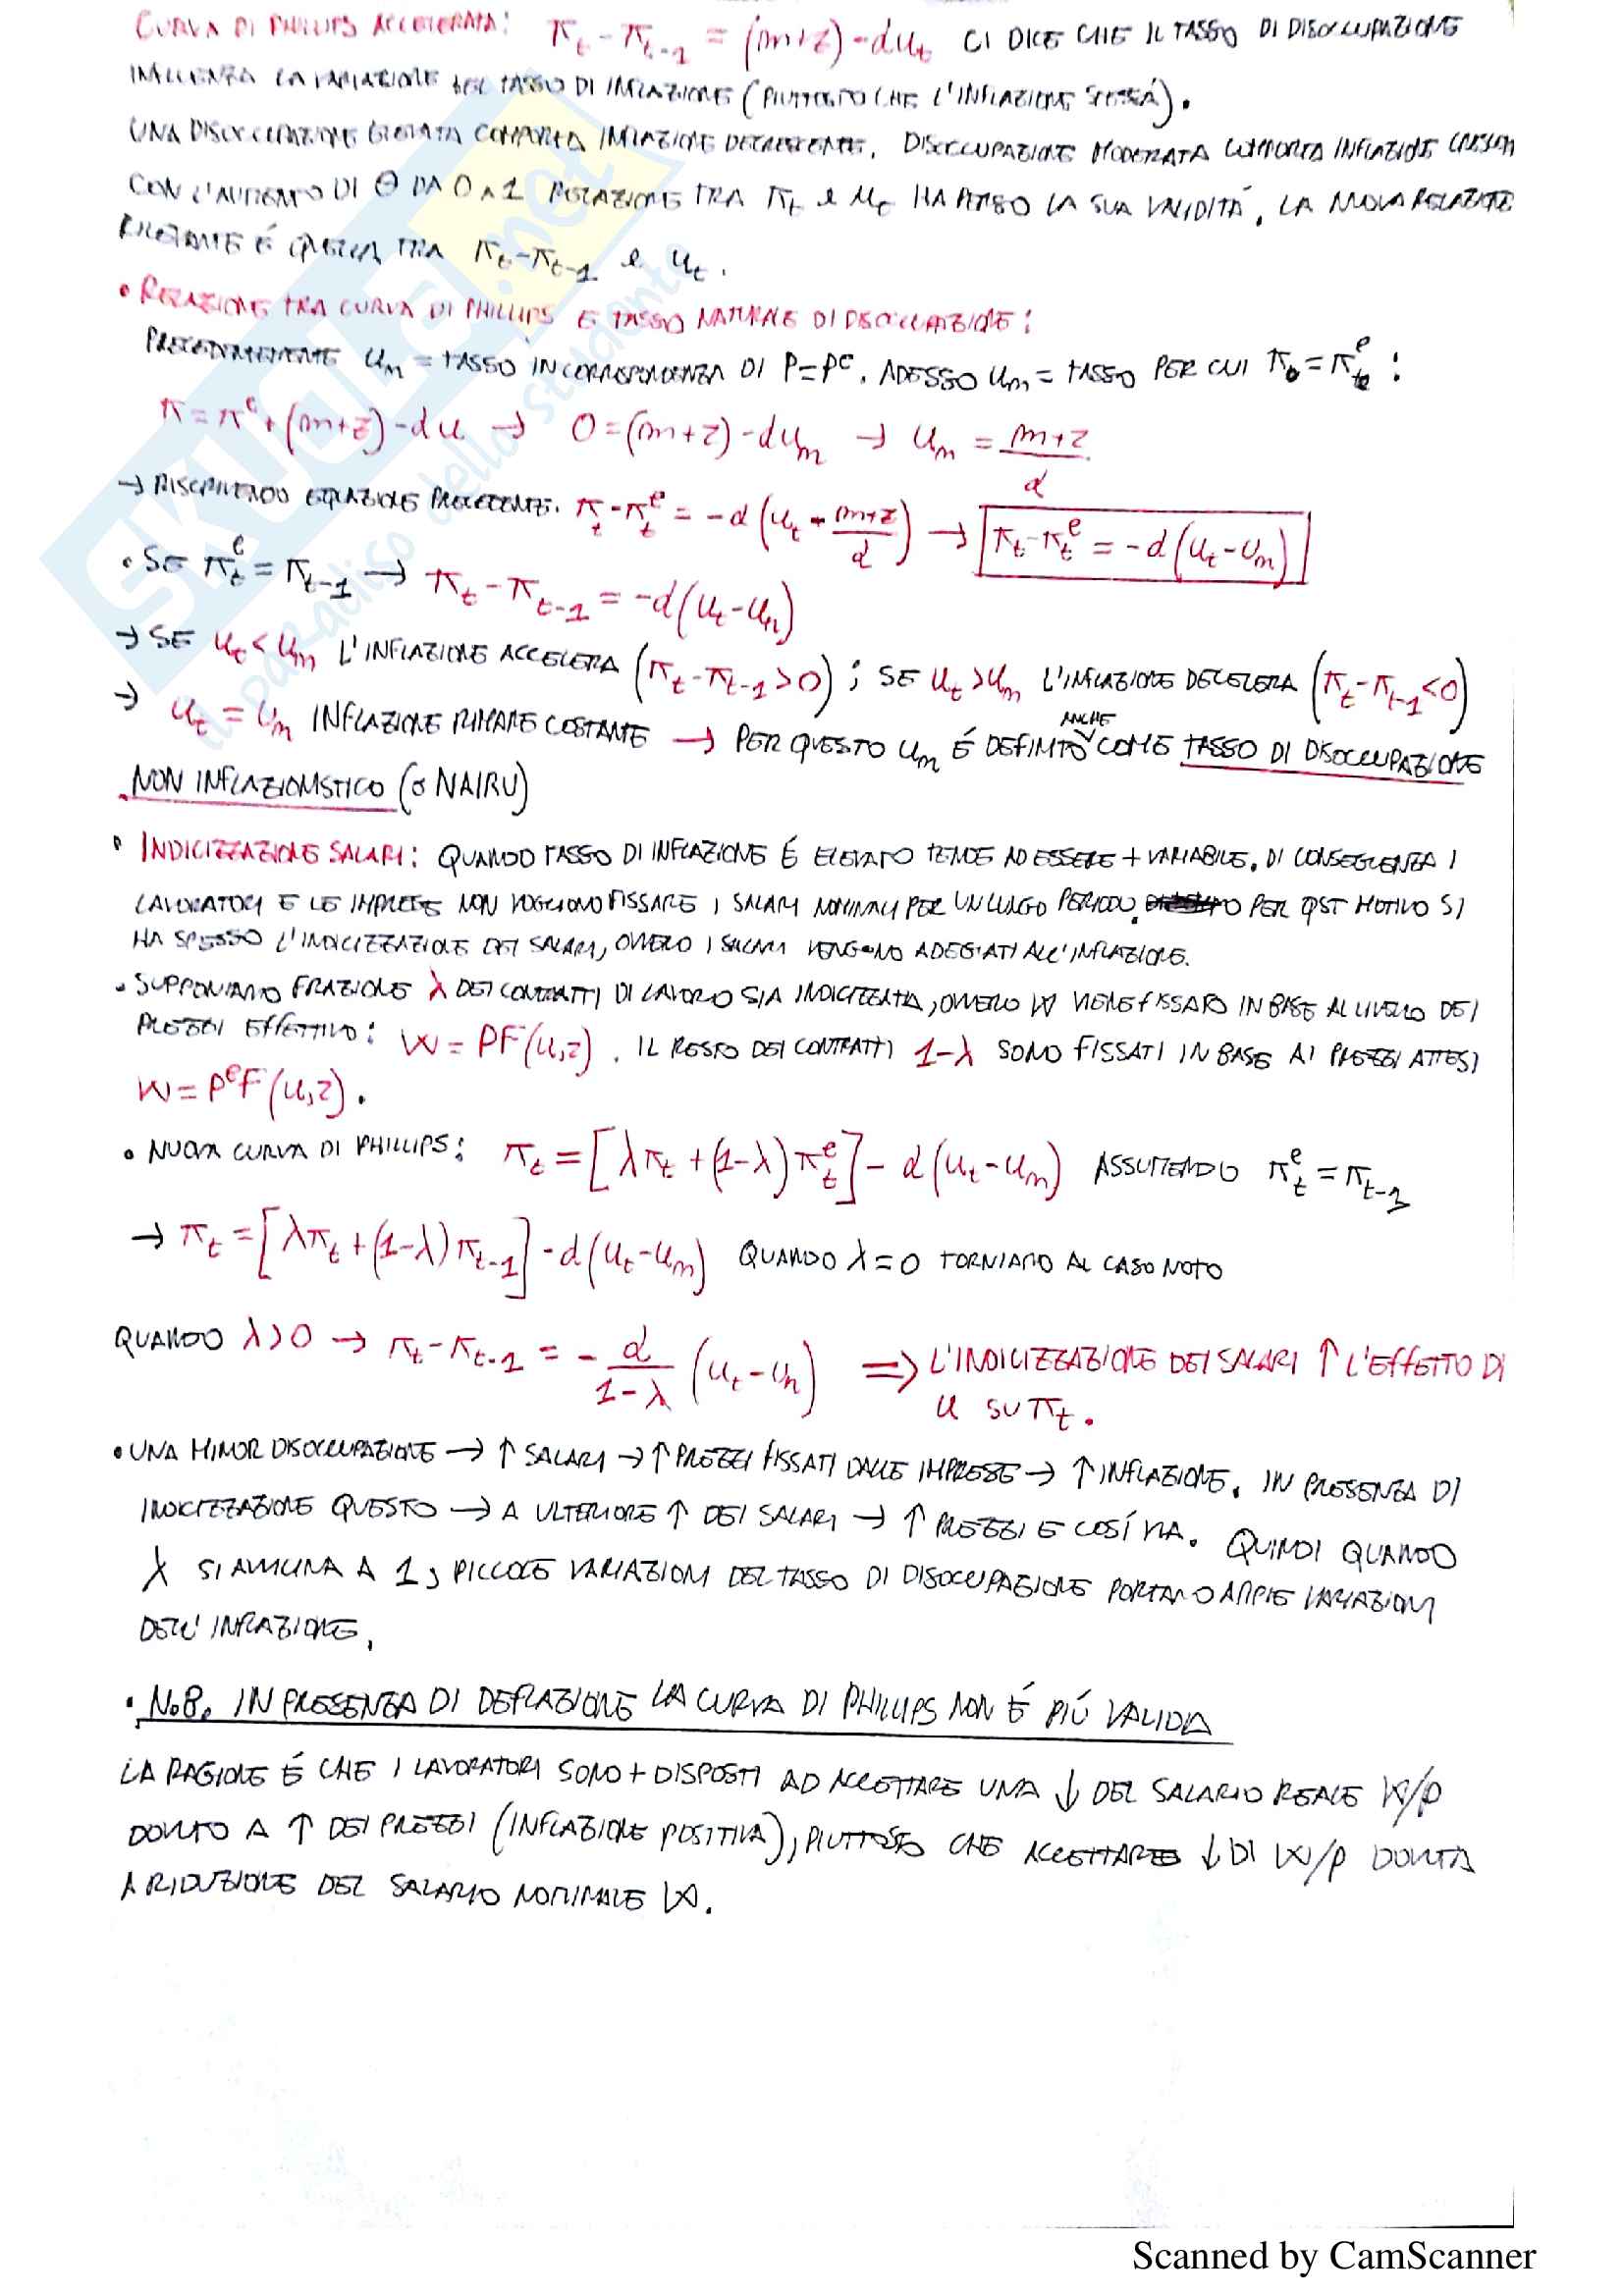 CURVA DI PHILLIPS ACCELERATA: πt - πt-1 = (m+z) - dut CI DICE CHE IL TASSO DI DISOCCUPAZIONE
INFLUENZA LA VARIAZIONE DEL TASSO DI INFLAZIONE (PIUTTOSTO CHE L'INFLAZIONE STESSA).
UNA DISOCCUPAZIONE ELEVATA COMPORTA INFLAZIONE DECRESCENTE, DISOCCUPAZIONE MODERATA COMPORTA INFLAZIONE
CON L'AUMENTO DI θ DA 0 A 1 RELAZIONE TRA πt e ut HA PERSO LA SUA VALIDITÁ, LA NUOVA RELAZIONE
RILEVANTE É QUELLA TRA πt - πt-1 e ut.
• RELAZIONE TRA CURVA DI PHILLIPS E TASSO NATURALE DI DISOCCUPAZIONE:
PRECEDENTEMENTE un = TASSO IN CORRISPONDENZA DI P=Pe, ADESSO un = TASSO PER CUI πt = πte :
π = πe + (m+z) - du → 0 = (m+z) - dun → un = m+z / d
→ RISCRIVENDO EQUAZIONE PRECEDENTE: πt - πte = -d (ut - m+z / d) → πt - πte = -d (ut - un)
• SE πte = πt-1 → πt - πt-1 = -d (ut - un)
→ SE ut < un L'INFLAZIONE ACCELERA (πt - πt-1 > 0) ; SE ut > un L'INFLAZIONE DECELERA (πt - πt-1 < 0)
→ ut = un INFLAZIONE RIMANE COSTANTE → PER QUESTO un É DEFINITO ANCHE COME TASSO DI DISOCCUPAZIONE
NON INFLAZIONISTICO (o NAIRU)
• INDICIZZAZIONE SALARI: QUANDO TASSO DI INFLAZIONE É ELEVATO TENDE AD ESSERE + VARIABILE. DI CONSEGUENZA I
LAVORATORI E LE IMPRESE NON VOGLIONO FISSARE I SALARI NOMINALI PER UN LUNGO PERIODO. PER QST MOTIVO SI
HA SPESSO L'INDICIZZAZIONE DEI SALARI, OVVERO I SALARI VENGONO ADEGUATI ALL'INFLAZIONE.
• SUPPONIAMO FRAZIONE λ DEI CONTRATTI DI LAVORO SIA INDICIZZATA, OVVERO W VIENE FISSATO IN BASE AL LIVELLO DEI
PREZZI EFFETTIVO: W = PF(u,z). IL RESTO DEI CONTRATTI 1-λ SONO FISSATI IN BASE AI PREZZI ATTESI
W = PeF(u,z).
• NUOVA CURVA DI PHILLIPS: πt = [λπt + (1-λ)πte] - d (ut - un) ASSUMENDO πte = πt-1
→ πt = [λπt + (1-λ)πt-1] - d (ut - un) QUANDO λ = 0 TORNIAMO AL CASO NOTO
QUANDO λ > 0 → πt - πt-1 = - d / 1-λ (ut - un) ⇒ L'INDICIZZAZIONE DEI SALARI ↑ L'EFFETTO DI
u SU πt.
• UNA MINOR DISOCCUPAZIONE → ↑ SALARI → ↑ PREZZI FISSATI DALLE IMPRESE → ↑ INFLAZIONE. IN PRESENZA DI
INDICIZZAZIONE QUESTO → A ULTERIORE ↑ DEI SALARI → ↑ PREZZI E COSÍ VIA. QUINDI QUANDO
λ SI AVVICINA A 1, PICCOLE VARIAZIONI DEL TASSO DI DISOCCUPAZIONE PORTANO AMPIE VARIAZIONI
DELL'INFLAZIONE.
• N.B. IN PRESENZA DI DEFLAZIONE LA CURVA DI PHILLIPS NON É PIÚ VALIDA
LA RAGIONE É CHE I LAVORATORI SONO + DISPOSTI AD ACCETTARE UNA ↓ DEL SALARIO REALE W/P
DOVUTO A ↑ DEI PREZZI (INFLAZIONE POSITIVA), PIUTTOSTO CHE ACCETTARE ↓ DI W/P DOVUTA
A RIDUZIONE DEL SALARIO NOMINALE W.
SKUOLA.net
il paradiso dello studente
Scanned by CamScanner